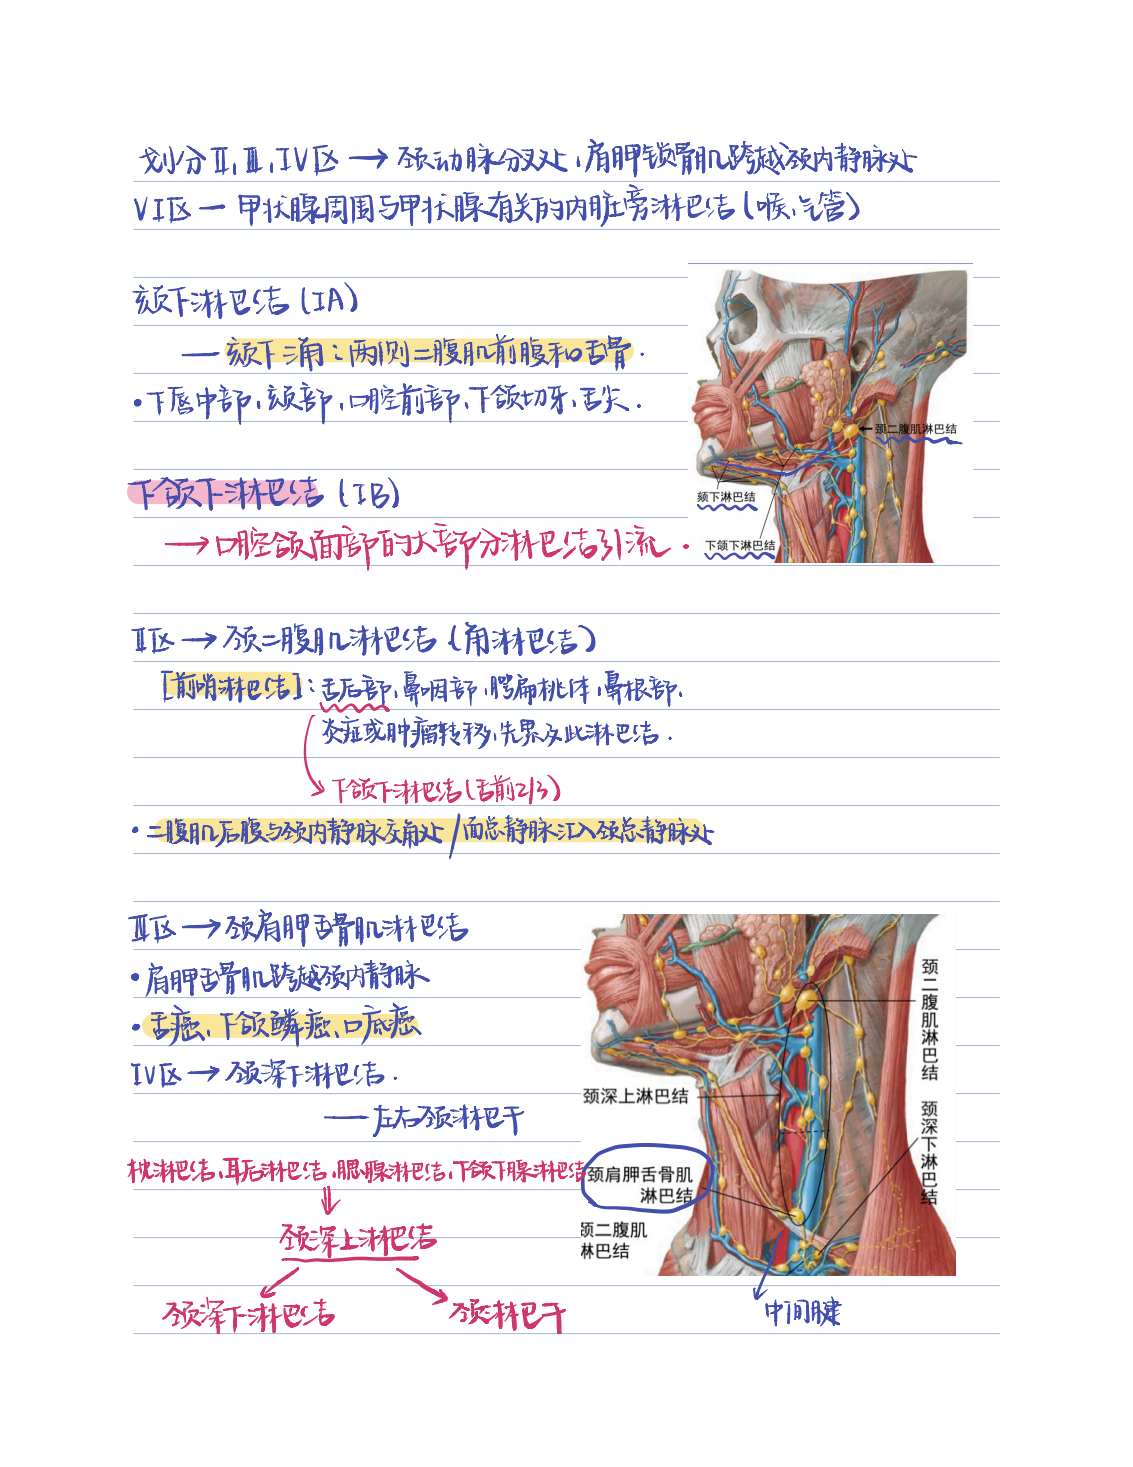 划分Ⅱ、Ⅲ、ⅠV区 → 颈动脉分叉处、肩胛锁骨肌跨越颈内静脉处
VⅠ区 — 甲状腺周围与甲状腺有关的内脏旁淋巴结(喉、气管)
颏下淋巴结(ⅠA)
— 颏下三角：两侧二腹肌前腹和舌骨.
•下唇中部、颏部、口腔前部、下颌切牙、舌尖.
颈二腹肌淋巴结
颏下淋巴结
下颌下淋巴结
下颌下淋巴结(ⅠB)
→口腔颌面部的大部分淋巴结引流.
Ⅱ区 → 颈二腹肌淋巴结(角淋巴结)
[前哨淋巴结]：舌后部、鼻咽部、腭扁桃体、鼻根部、
炎症或肿瘤转移、先累及此淋巴结.
下颌下淋巴结(舌前2/3)
•二腹肌后腹与颈内静脉交角处/面总静脉汇入颈总静脉处
Ⅲ区 → 颈肩胛舌骨肌淋巴结
•肩胛舌骨肌跨越颈内静脉
•舌癌、下颌鳞癌、口底癌
ⅠV区 → 颈深下淋巴结.
— 左右颈淋巴干
枕淋巴结、耳后淋巴结、腮腺淋巴结、下颌下腺淋巴结
颈深上淋巴结
颈深下淋巴结
颈淋巴干
颈二腹肌淋巴结
颈深上淋巴结
颈深下淋巴结
颈肩胛舌骨肌
淋巴结
颈二腹肌
淋巴结
中间腱